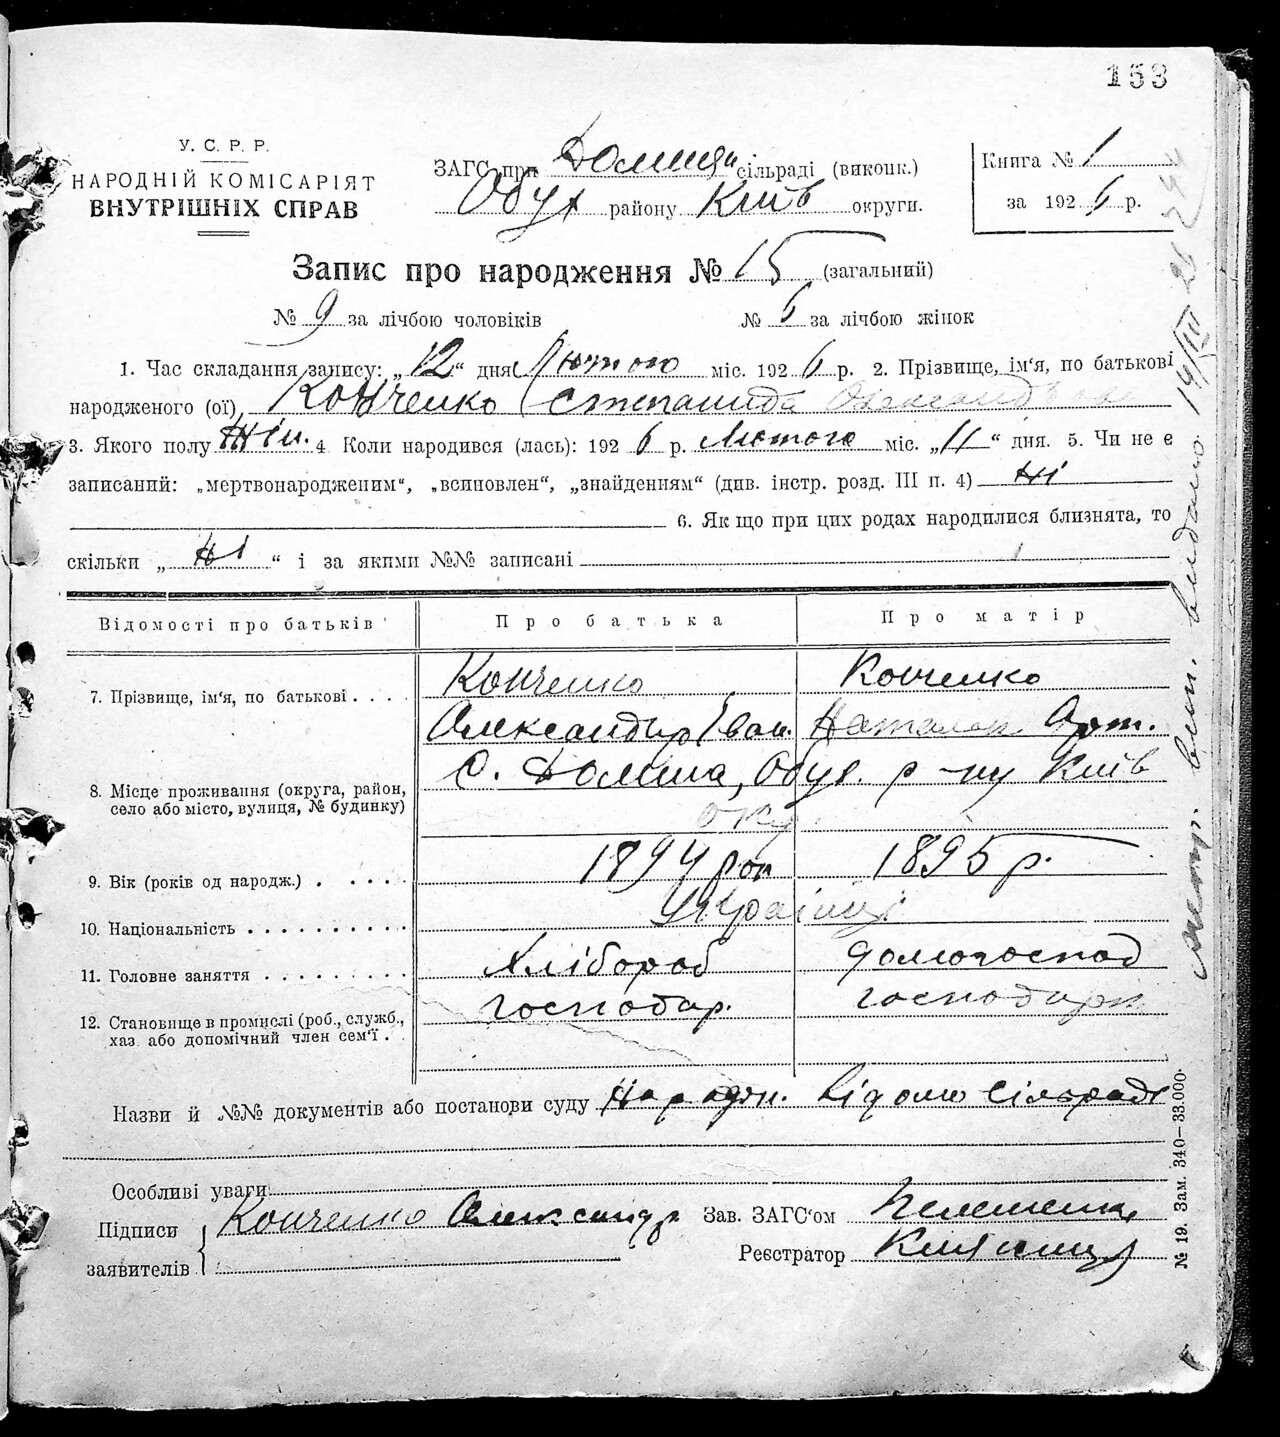 153
У. С. Р. Р.
НАРОДНІЙ КОМІСАРІЯТ
ВНУТРІШНІХ СПРАВ
ЗАГС при Долинян сільраді (виконк.)
Обух району Київ округи.
Книга № 1
за 1926 р.
Запис про народження № 15 (загальний)
№ 9 за лічбою чоловіків № 6 за лічбою жінок
1. Час складання запису: „12“ дня Лютого міс. 1926 р. 2. Прізвище, ім'я, по батькові
народженого (ої) Конченко Степанида Олександровна
3. Якого полу Жін. 4 Коли народився (лась): 1926 р. Лютого міс. „11“ дня. 5. Чи не є
записаний: „мертвонародженим“, „всиновлен“, „знайденням“ (див. інстр. розд. III п. 4) Ні
6. Як що при цих родах народилися близнята, то
скільки „Ні“ і за якими №№ записані
Відомості про батьків Про батька Про матір
7. Прізвище, ім'я, по батькові Конченко Конченко
Александр Іван. Наталія Арт.
8. Місце проживання (округа, район, село або місто, вулиця, № будинку) С. Долина, Обух. р-ну Київ
окр.
9. Вік (років од народж.) 1894 рок 1895 р.
10. Національність Українці
11. Головне заняття Хлібороб домогоспод
12. Становище в промислі (роб., служб., хаз або допомічний член сем'ї господар. господарк
Назви й №№ документів або постанови суду Народж. відомо сільраді
Особливі уваги
Підписи заявителів Конченко Александр Зав. ЗАГС'ом
Реєстратор
№ 19. Зам. 340—33.000.
метр. вип. видано 14/III 26